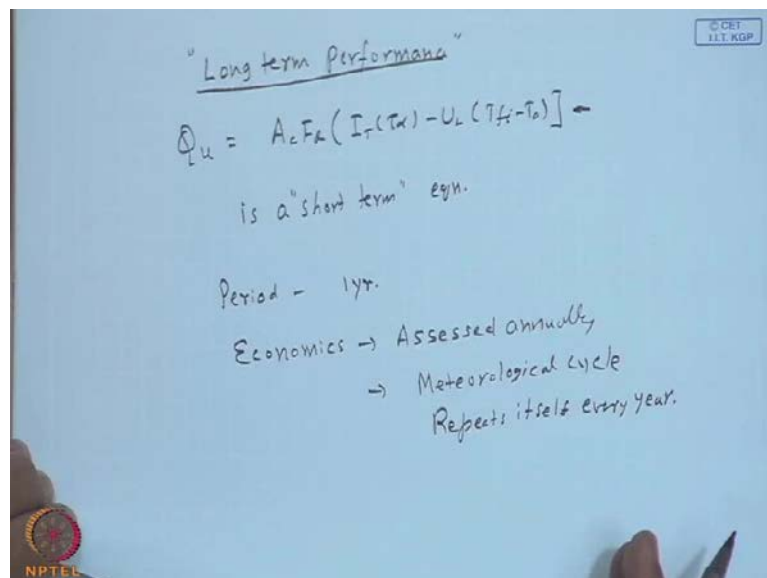 © CET
I.I.T. KGP
"Long term Performance"
Qu = AcFR ( IT (τα) - UL (Tfi - Ta) ] -
is a "short term" eqn.
Period - 1yr.
Economics → Assessed annually
→ Meteorological cycle
Repeats itself every year.
NPTEL